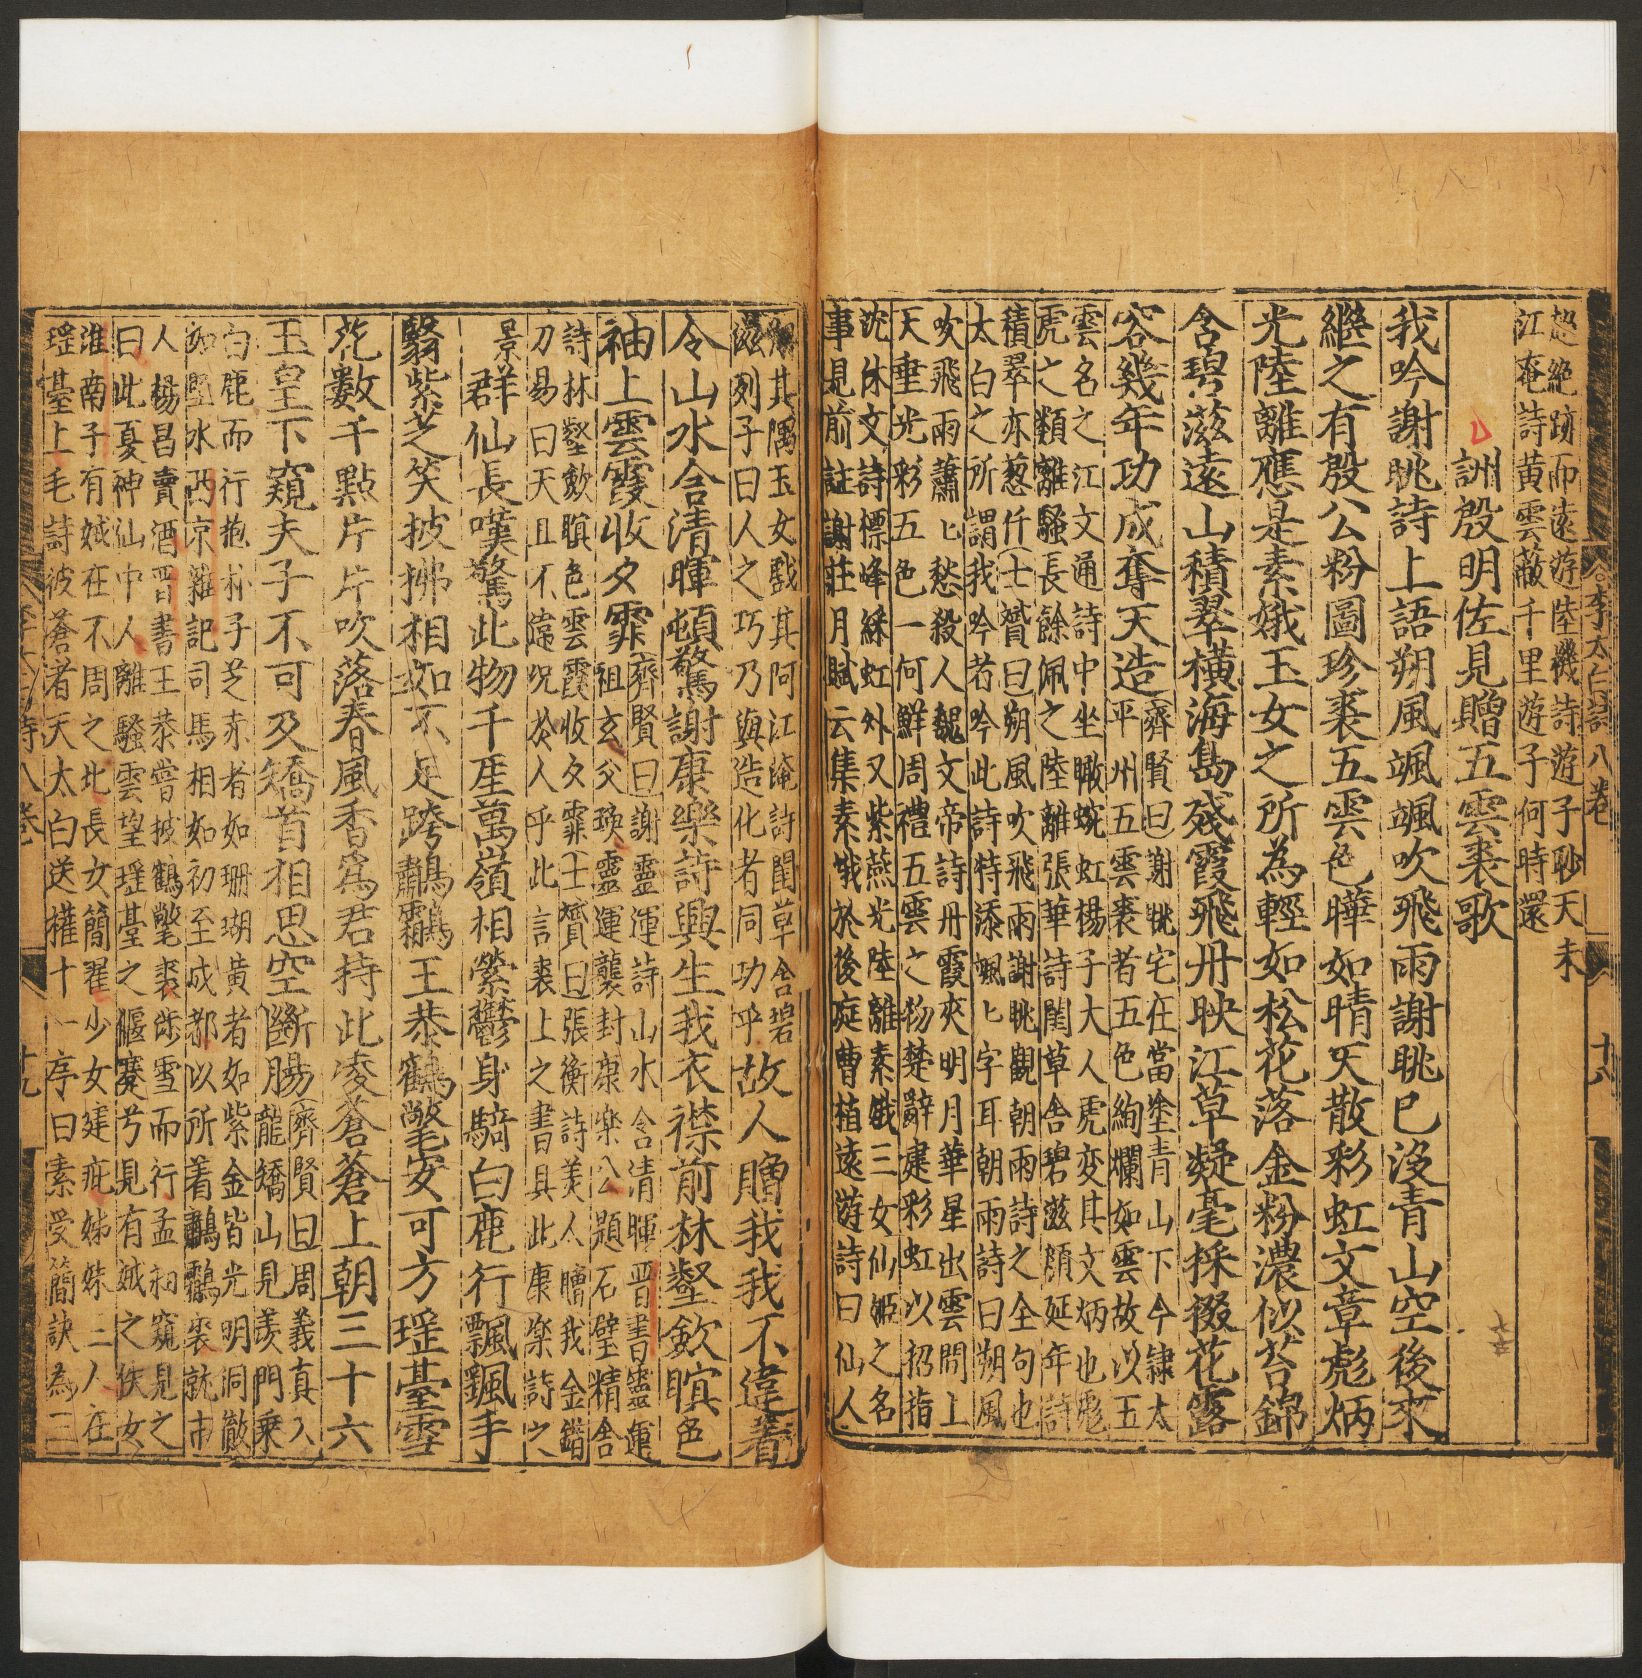 超絶跡而遠游陸機詩遊子眇天末
江奄詩黃雲蔽千里遊子何時還
詶殷明佐見贈五雲裘歌
我吟謝眺詩上語朔風颯颯吹飛雨謝眺已沒青山空後來
繼之有殷公粉圖珍裘五雲色曄如晴天散彩虹文章彪炳
光陸離應是素娥玉女之所為輕如松花落金粉濃似苔錦
含碧滋遠山積翠橫海島殘霞飛丹映江草凝毫採掇花露
容幾年功成奪天造
齊賢曰謝眺宅在當塗青山下今隸太
平州五雲裘者五色絢爛如雲故以五
雲名之江文通詩中坐瞰蜿虹楊子大人虎变其文炳也彪
虎之類離騷長餘佩之陸離張華詩閨草含碧滋顔延年詩
積翠亦葱仟士贇曰朔風吹飛雨謝眺觀朝雨詩之全句也
太白之所謂我吟者吟此詩特添颯匕字耳朝雨詩曰朔風
吹飛雨蕭匕愁殺人魏文帝詩丹霞夾明月華星出雲間上
天垂光彩五色一何鮮周禮五雲之物楚辭建彩虹以招指
沈休文詩標峰綵虹外又紫燕光陸離素娥三女仙姬之名
事見前註謝莊月賦云集素娥於後庭曹植遠游詩曰仙人
翔其隅玉女戲其阿江淹詩閨草含碧
滋列子曰人之巧乃與造化者同功乎
故人贈我我不違著
令山水含清暉頓驚謝康樂詩興生我衣襟前林壑斂暝色
袖上雲霞收夕霏
齊賢曰謝靈運詩山水含清暉晋書靈運
祖玄父瑛靈運襲封康樂公題石壁精舎
詩林壑歛暝色雲霞收夕霏士贇曰張衡詩美人贈我金錯
刀易曰天且不違况於人乎此言裘上之書具此康樂詩之
景
群仙長嘆驚此物千崖萬嶺相縈鬱身騎白鹿行飄颻手
翳紫芝笑披拂相如不足跨鸘鸘王恭鶴氅安可方瑶臺雪
花數千點片片吹落春風香爲君持此凌蒼蒼上朝三十六
玉皇下窺夫子不可及矯首相思空斷腸
齊賢曰周義真入
龍矯山見羡門乘
白鹿而行抱朴子芝赤者如珊瑚黃者如紫金皆光明洞徹
如堅冰西京雜記司馬相如初至成都以所着鸘鸘裘就市
人楊昌賣酒晋書王恭嘗披鶴氅裘涉雪而行孟昶窺見之
曰此夏神仙中人離騷雲望瑶臺之偃蹇兮見有娀之佚女
淮南子有娀在不周之北長女簡翟少女建疵姊妹二人在
瑶臺上毛詩彼蒼者天太白送權十一序曰素受簡訣為三
李太白詩八卷
十八